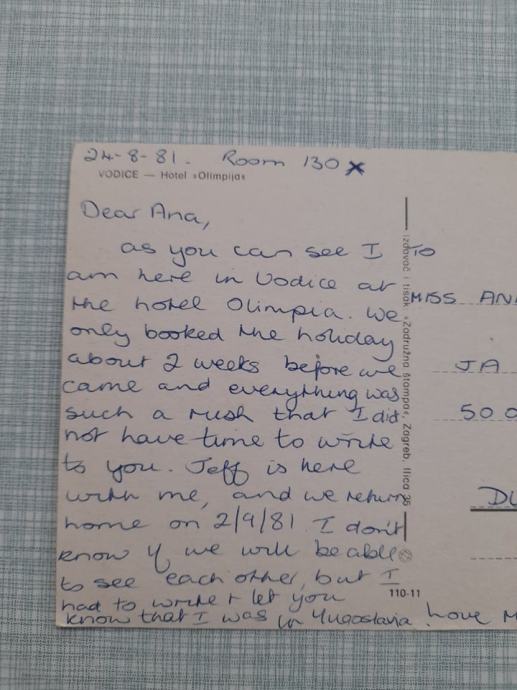 24-8-81. Room 130 x
VODICE — Hotel »Olimpija«
Dear Ana,
as you can see I
am here in Vodice at
the hotel Olimpia. We
only booked the holiday
about 2 weeks before we
came and everything was
such a rush that I did
not have time to write
to you. Jeff is here
with me, and we return
home on 2/9/81. I don't
know if we will be able
to see each other, but I
had to write & let you
know that I was in Yugoslavia. Love
Izdavač i tisak »Zadružna štampa«, Zagreb, Ilica 35
110-11
TO
MISS AN
JA
50
DU